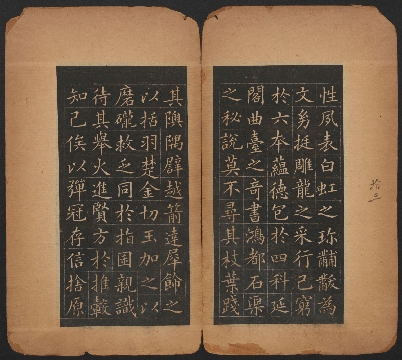 拾三
性風表白虹之珎黼黻為
文多挺雕龍之采行己窮
於六本蘊德包於四科延
閣曲臺之奇書鴻都石渠
之秘說莫不尋其枝葉踐
其隩隅譬越箭達犀飾之
以括羽楚金切玉加之以
磨礲救乏同於指囷親識
待其舉火進賢方於推轂
知己俟以彈冠存信捨原